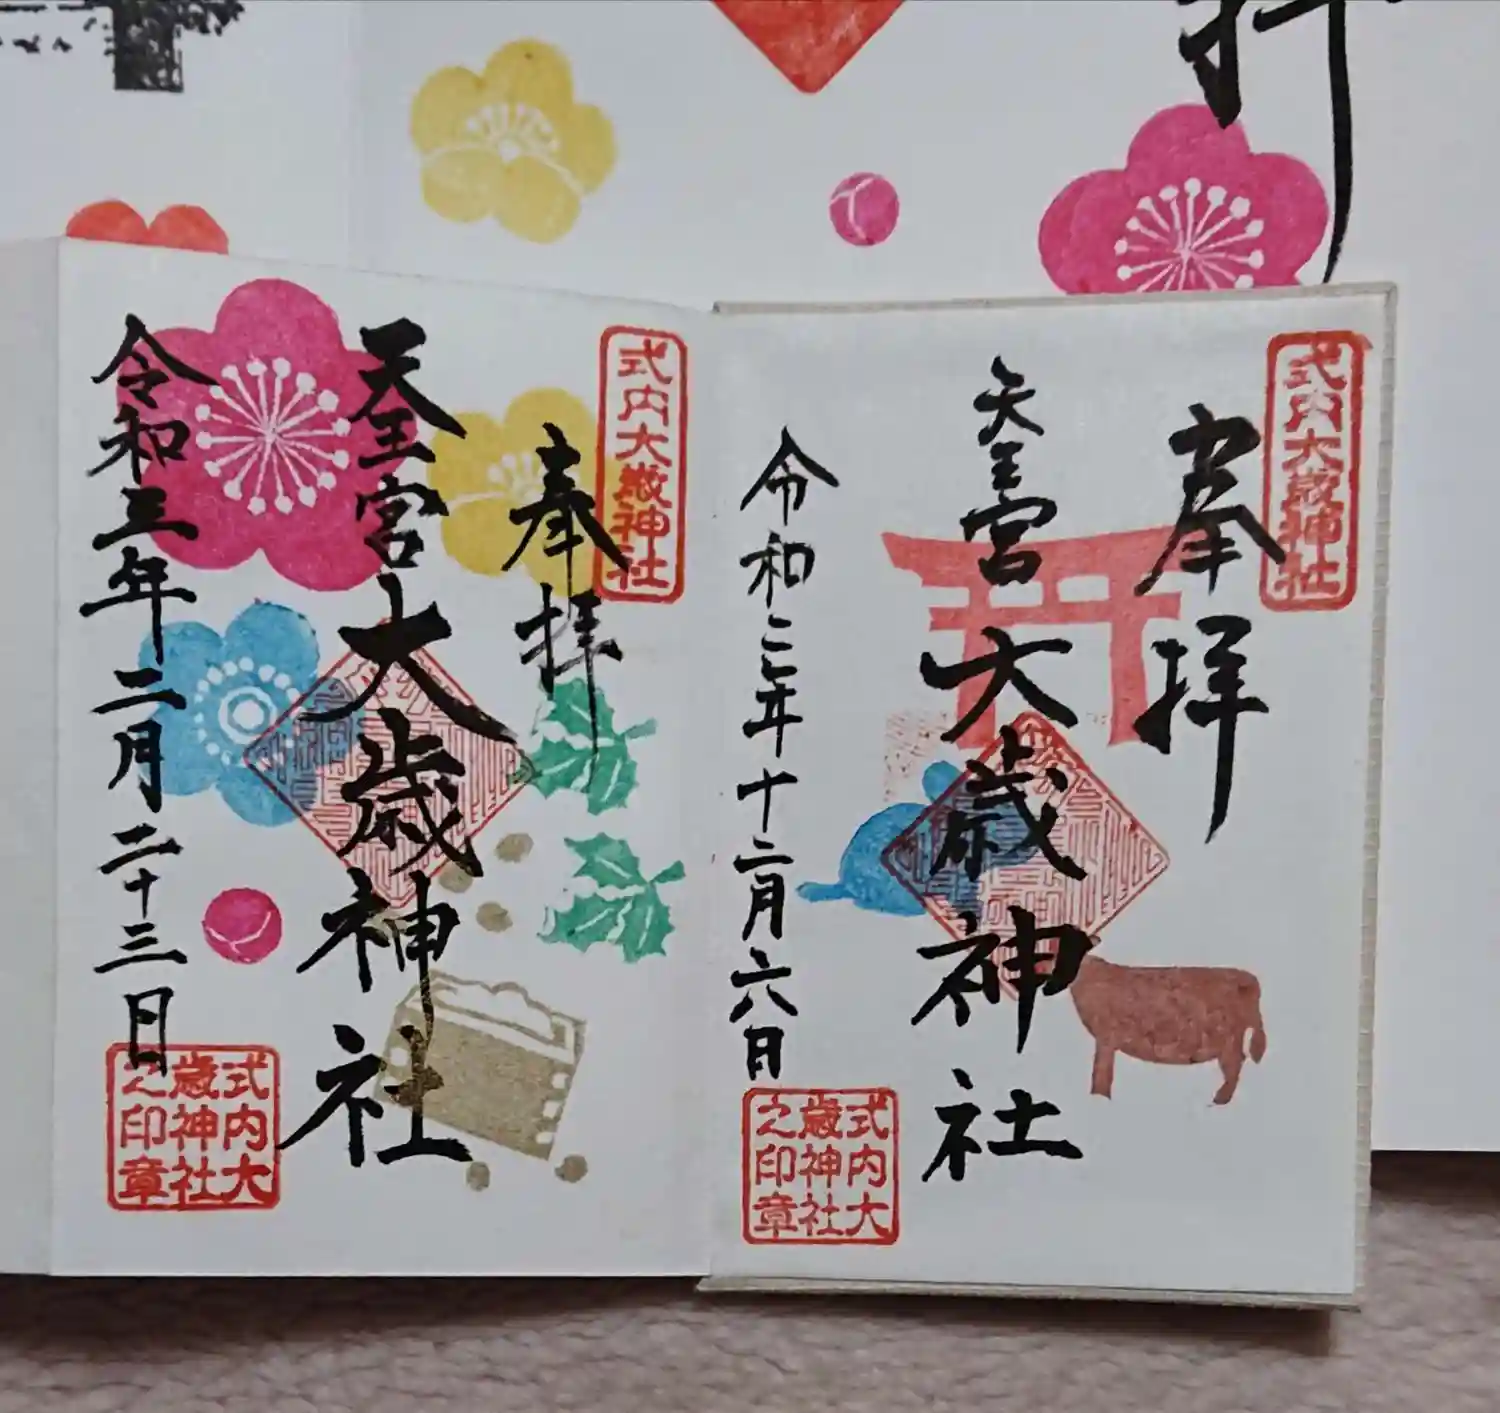 拝
式内大歳神社
奉拝
天王宮大歳神社
令和二年十二月六日
式内大
歳神社
之印章
式内大歳神社
奉拝
天王宮大歳神社
令和三年二月二十三日
式内大
歳神社
之印章